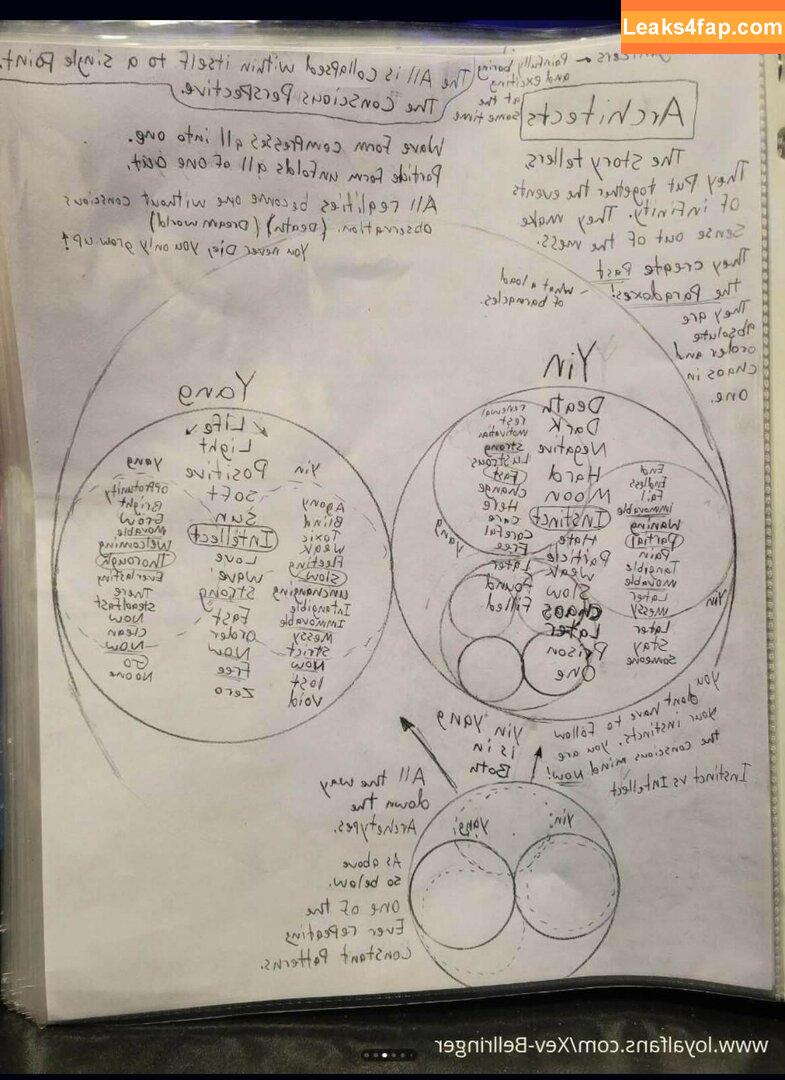 Leaks4fap.com
Painfully boring
and exciting
at the
same time
The All is collapsed within itself to a single Point.
The Conscious Perspective.
Architects
The Story tellers,
They Put together the events
of infinity. They make
Sense out of the mess.
They create Past
the Paradoxes!
They are
absolute
order and
chaos in
one.
what a load
of barnacles.
Wave Form compresses all into one.
Particle Form unfolds all of one out.
All realities become one without conscious
observation. (Death) (Dream world)
You never Die, you only grow up!
Yin
Death
Dark
Negative
Hard
Moon
Instinct
Hate
Particle
Weak
Slow
Chaos
Later
Prison
One
End
Endless
Fail
immovable
Waning
Partial
Pain
Tangible
movable
Later
messy
Later
Stay
Someone
Yin
renewal
rest
motivation
strong
Lustrous
Fast
change
Here
care
Careful
Free
Later
Found
Filled
Yang
Yang
Life
Light
Positive
Soft
Sun
Intellect
Love
wave
Strong
Fast
order
Now
Free
Zero
Yin
Agony
Blind
Toxic
weak
Fleeting
Slow
unchanging
Intangible
Immovable
messy
Strict
Now
lost
Void
yang
opportunity
Bright
Grow
movable
Welcoming
Thorough
Everlasting
There
steadfast
Now
clean
Now
Go
No one
you
dont have to follow
your instincts, you are
the conscious mind Now!
Instinct vs Intellect
yin yang
is in
Both
yin
yang
All the way
down the
Archetypes.
As above
so below.
one of the
Ever repeating
Constant Patterns.
www.loyalfans.com/Xev-Bellringer